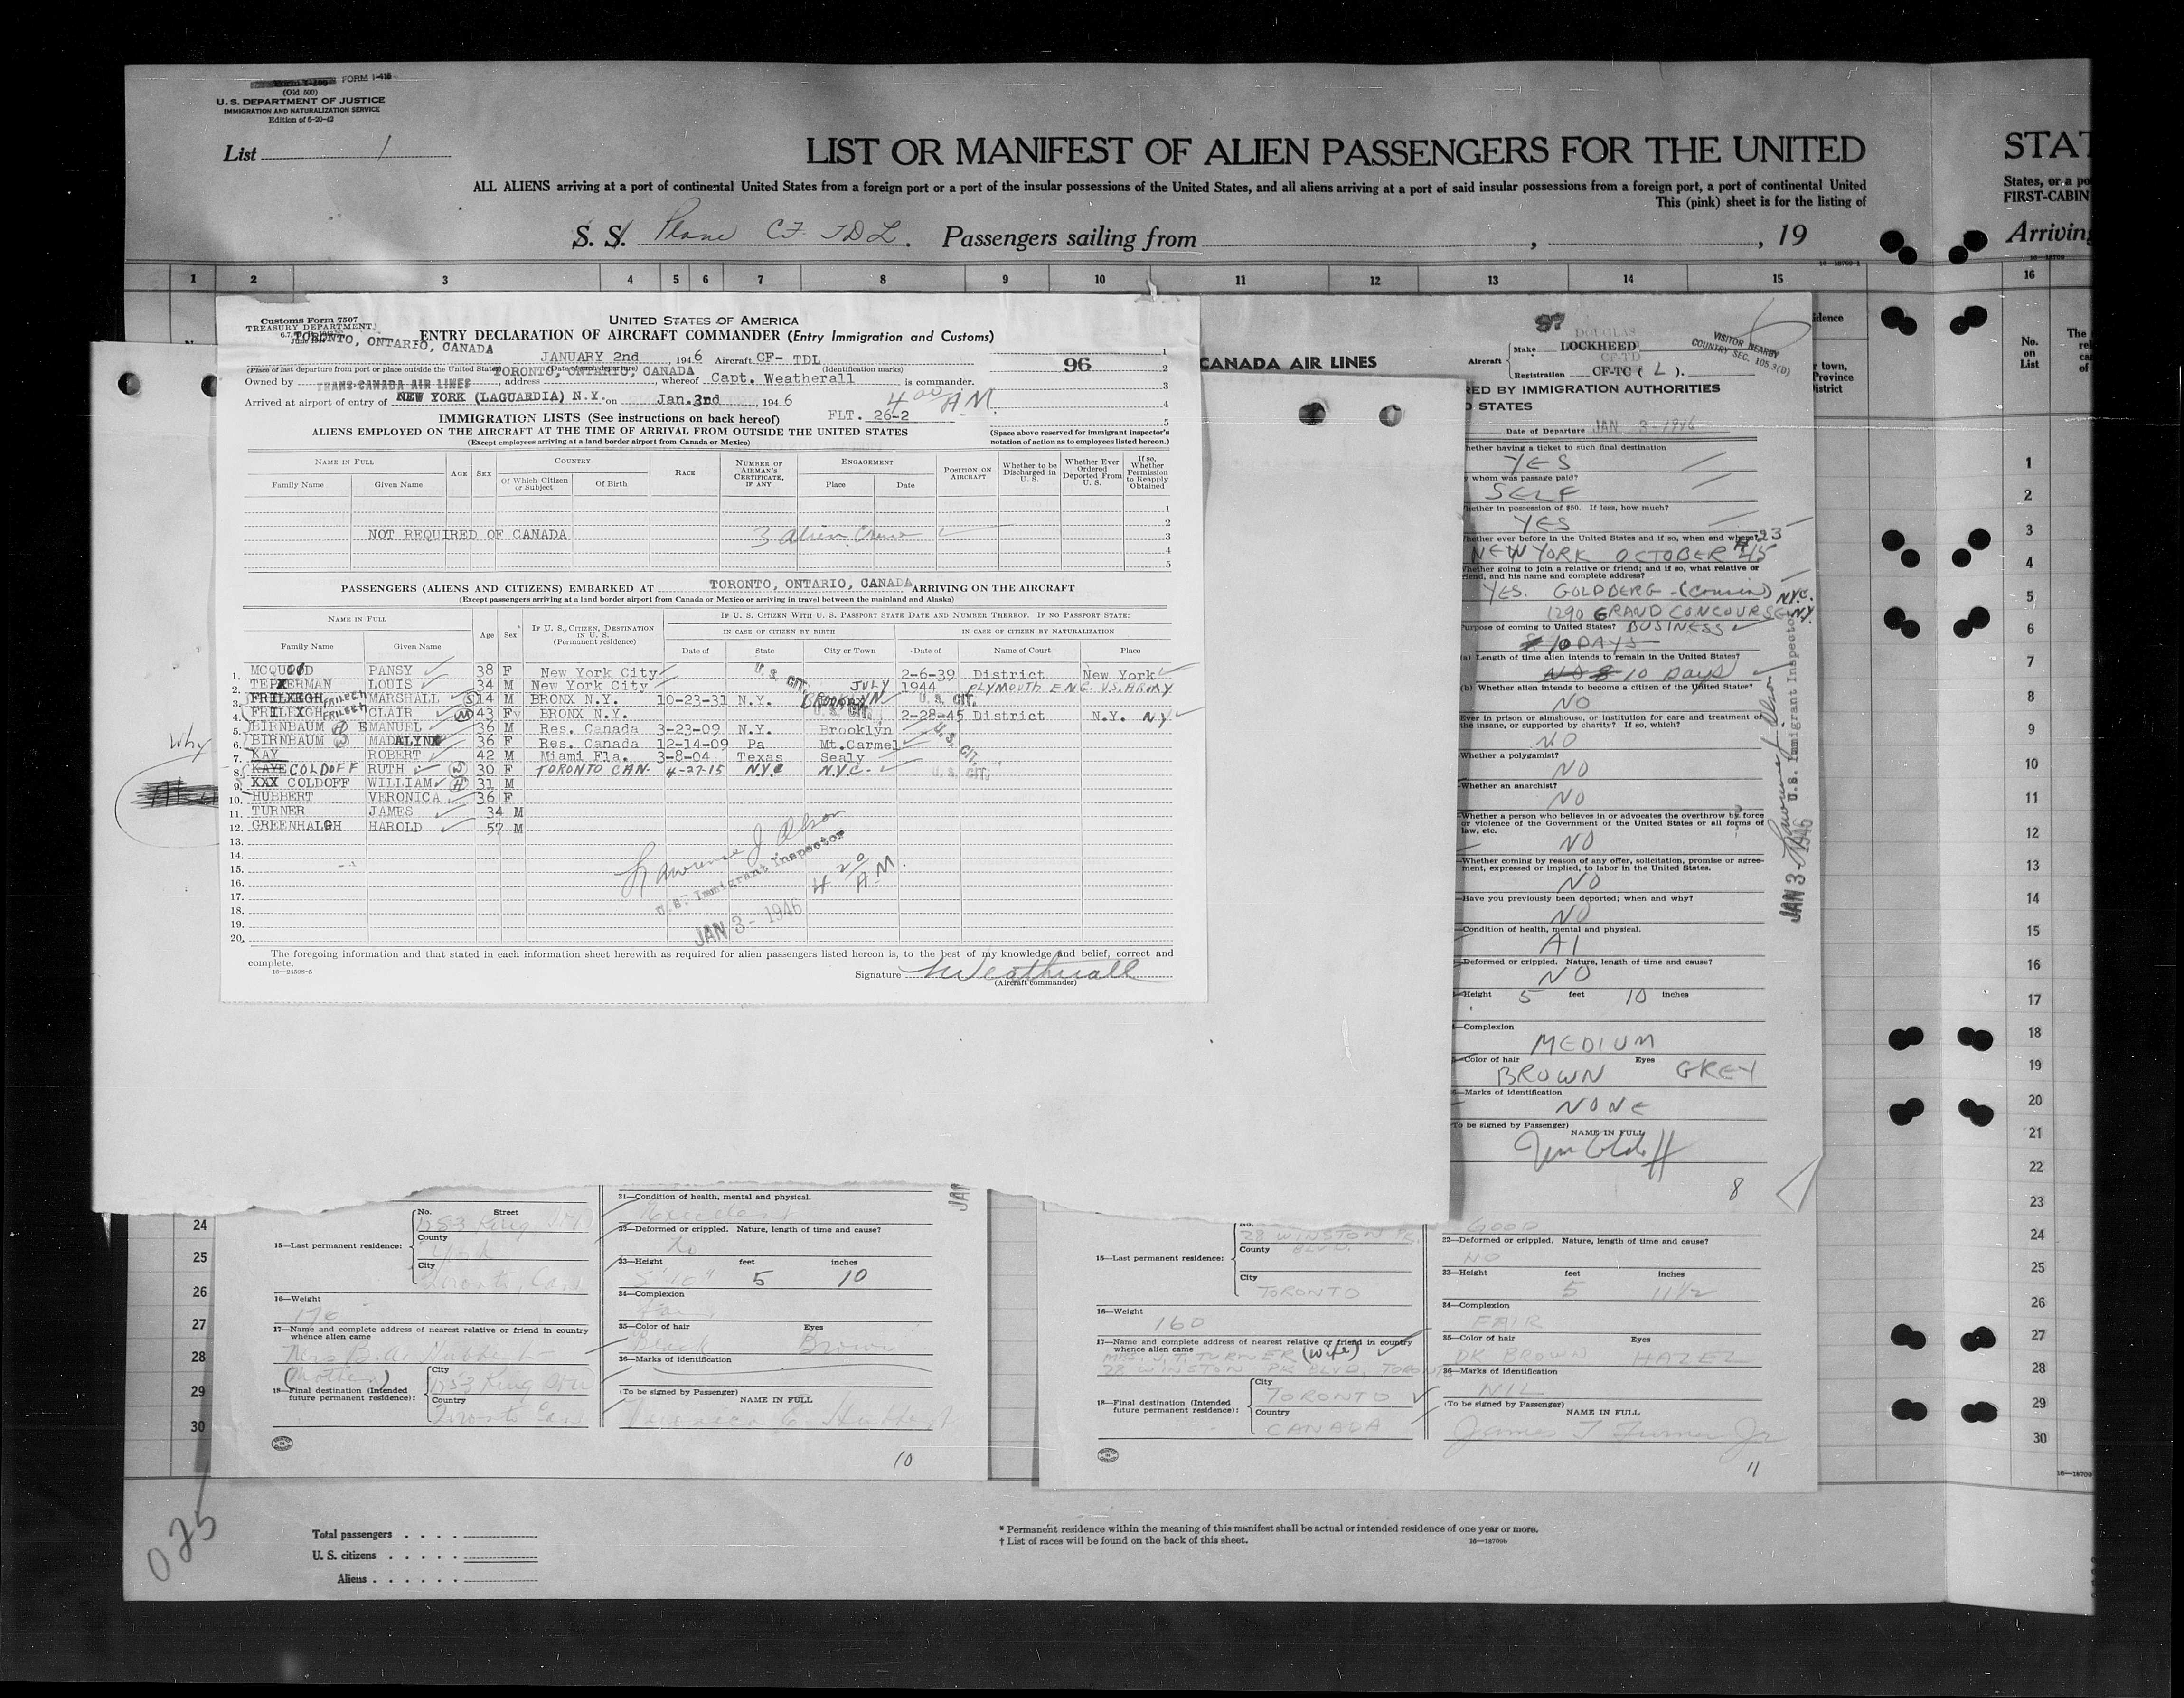 FORM I-415
(Old 500)
U. S. DEPARTMENT OF JUSTICE
IMMIGRATION AND NATURALIZATION SERVICE
Edition of 6-20-42
List 1
LIST OR MANIFEST OF ALIEN PASSENGERS FOR THE UNITED
STAT
ALL ALIENS arriving at a port of continental United States from a foreign port or a port of the insular possessions of the United States, and all aliens arriving at a port of said insular possessions from a foreign port, a port of continental United
States, or a po
This (pink) sheet is for the listing of
FIRST-CABIN
S. S. Plane CF. TDL. Passengers sailing from , , 19
Arriving
1 2 3 4 5 6 7 8 9 10 11 12 13 14 15 16
Customs Form 7507
TREASURY DEPARTMENT
UNITED STATES OF AMERICA
ENTRY DECLARATION OF AIRCRAFT COMMANDER (Entry Immigration and Customs)
TORONTO, ONTARIO, CANADA
JANUARY 2nd , 194 6 Aircraft CF- TDL
(Place of last departure from port or place outside the United States) (Date of such departure) (Identification marks)
96
Owned by TRANS-CANADA AIR LINES , address TORONTO, ONTARIO, CANADA , whereof Capt. Weatherall is commander.
Arrived at airport of entry of NEW YORK (LAGUARDIA) N.Y. on Jan. 3rd , 194 6
4 00 AM
IMMIGRATION LISTS (See instructions on back hereof) FLT. 26-2
ALIENS EMPLOYED ON THE AIRCRAFT AT THE TIME OF ARRIVAL FROM OUTSIDE THE UNITED STATES
(Except employees arriving at a land border airport from Canada or Mexico)
(Space above reserved for immigrant inspector's notation of action as to employees listed hereon.)
NAME IN FULL
Family Name Given Name
AGE SEX
COUNTRY
Of Which Citizen or Subject Of Birth
RACE
NUMBER OF AIRMAN'S CERTIFICATE, IF ANY
ENGAGEMENT
Place Date
POSITION ON AIRCRAFT
Whether to be Discharged in U. S.
Whether Ever Ordered Deported From U. S.
If so, Whether Permission to Reapply Obtained
1
2
NOT REQUIRED OF CANADA 3 alien crew 3
4
5
PASSENGERS (ALIENS AND CITIZENS) EMBARKED AT TORONTO, ONTARIO, CANADA ARRIVING ON THE AIRCRAFT
(Except passengers arriving at a land border airport from Canada or Mexico or arriving in travel between the mainland and Alaska)
NAME IN FULL
Family Name Given Name
Age Sex
IF U. S. CITIZEN, DESTINATION IN U. S. (Permanent residence)
IF U. S. CITIZEN WITH U. S. PASSPORT STATE DATE AND NUMBER THEREOF. IF NO PASSPORT STATE:
IN CASE OF CITIZEN BY BIRTH
IN CASE OF CITIZEN BY NATURALIZATION
Date of State City or Town Date of Name of Court Place
1. MCQUOID PANSY 38 F New York City U. S. CIT. 2-6-39 District New York
2. TEPKERMAN LOUIS 34 M New York City JULY 1944 PLYMOUTH ENG. U.S. ARMY
3. FRILEIGH FRILEGH MARSHALL (S) 14 M BRONX N.Y. 10-23-31 N.Y. BROOKLYN U. S. CIT.
4. FRILEIGH FRILEGH CLAIR (W) 43 F BRONX N.Y. U. S. CIT. 2-28-45 District N.Y. N.Y.
5. BIRNBAUM (H) EMANUEL 36 M Res. Canada 3-23-09 N.Y. Brooklyn
6. BIRNBAUM MADALYNE 36 F Res. Canada 12-14-09 Pa Mt.Carmel U. S. CIT.
7. KAY ROBERT 42 M Miami Fla. 3-8-04 Texas Sealy
8. KAYE COLDOFF RUTH (W) 30 F TORONTO CAN. 4-27-15 NYC N.Y.C. U. S. CIT.
9. XXX COLDOFF WILLIAM (H) 31 M
10. HUBBERT VERONICA 36 F
11. TURNER JAMES 34 M
12. GREENHALGH HAROLD 57 M
13.
14.
15.
16.
17.
18.
19.
20.
Why
Lawrence J Olson
U.S. Immigrant Inspector
4 20 A.M.
JAN 3 - 1946
The foregoing information and that stated in each information sheet herewith as required for alien passengers listed hereon is, to the best of my knowledge and belief, correct and complete.
16—21508-5
Signature Weatherall
(Aircraft commander)
CANADA AIR LINES
Aircraft Make DOUGLAS LOCKHEED
Registration CF-TD CF-TC ( L ).
VISITOR NEARBY COUNTRY SEC. 105.3(D)
RED BY IMMIGRATION AUTHORITIES
STATES
Date of Departure JAN. 3-1946
hether having a ticket to such final destination
YES
whom was passage paid?
SELF
hether in possession of $50. If less, how much?
YES
hether ever before in the United States and if so, when and where?
NEW YORK OCTOBER 23 45
hether going to join a relative or friend; and if so, what relative or
iend, and his name and complete address?
YES. GOLDBERG - (cousin) NYC.
1290 GRAND CONCOURSE N.Y.
urpose of coming to United States? BUSINESS
10 DAYS
(a) Length of time alien intends to remain in the United States?
10 Days
(b) Whether alien intends to become a citizen of the United States?
NO
Ever in prison or almshouse, or institution for care and treatment of
the insane, or supported by charity? If so, which?
NO
Whether a polygamist?
NO
Whether an anarchist?
NO
Whether a person who believes in or advocates the overthrow by force
or violence of the Government of the United States or all forms of
law, etc.
NO
Whether coming by reason of any offer, solicitation, promise or agree-
ment, expressed or implied, to labor in the United States.
NO
Have you previously been deported; when and why?
NO
Condition of health, mental and physical.
A1
Deformed or crippled. Nature, length of time and cause?
NO
Height 5 feet 10 inches
Complexion
MEDIUM
Color of hair Eyes
BROWN GREY
Marks of identification
NONE
To be signed by Passenger) NAME IN FULL
8
JAN 3 - 1946 Lawrence J Olson U.S. Immigrant Inspector
idence
r town,
Province
istrict
No. on List
The
1
2
3
4
5
6
7
8
9
10
11
12
13
14
15
16
17
18
19
20
21
22
23
24
25
26
27
28
29
30
24
25
26
27
28
29
30
15—Last permanent residence:
No. Street
1253 King St W
County
York
City
Toronto, Can
16—Weight
170
17—Name and complete address of nearest relative or friend in country
whence alien came
Mrs B.A. Hubbert
(Mother)
18—Final destination (Intended future permanent residence):
City
1253 King St W
Country
Toronto Can
31—Condition of health, mental and physical.
Excellent
32—Deformed or crippled. Nature, length of time and cause?
No
33—Height feet inches
5'10" 5 10
34—Complexion
Fair
35—Color of hair Eyes
Black Brown
36—Marks of identification
(To be signed by Passenger) NAME IN FULL
Veronica E. Hubbert
10
JAN
15—Last permanent residence:
No.
28 WINSTON PK.
County BLVD.
City
TORONTO
16—Weight
160
17—Name and complete address of nearest relative or friend in country
whence alien came
MRS. J. T. TURNER (wife)
28 WINSTON PK BLVD, TORONTO
18—Final destination (Intended future permanent residence):
City
TORONTO
Country
CANADA
GOOD
32—Deformed or crippled. Nature, length of time and cause?
NO
33—Height feet inches
5 11 1/2
34—Complexion
FAIR
35—Color of hair Eyes
DK BROWN HAZEL
36—Marks of identification
NIL
(To be signed by Passenger) NAME IN FULL
James T Turner Jr
11
025
Total passengers . . . .
U. S. citizens . . . . .
Aliens . . . . . .
* Permanent residence within the meaning of this manifest shall be actual or intended residence of one year or more.
† List of races will be found on the back of this sheet.
16—18700b
16—18700